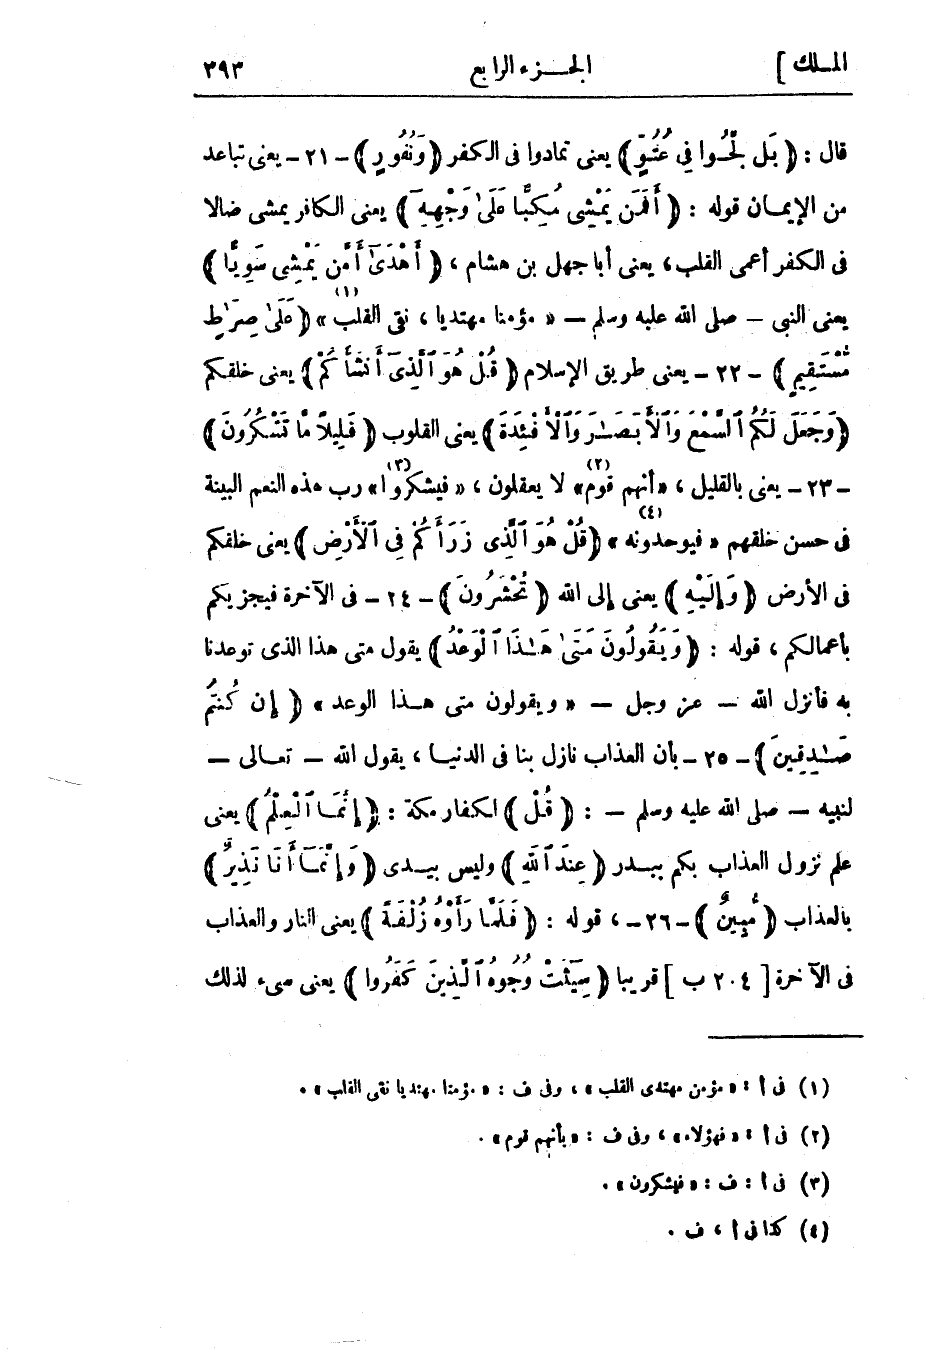 الملك ]
الجـــزء الرابع
٣٩٣
قال : ﴿ بَل لَّجُّوا فِي عُتُوٍّ ﴾ يعنى تمادوا فى الكفر ﴿ وَنُفُورٍ ﴾ – ٢١ – يعنى تباعد
من الإيمــان قوله : ﴿ أَفَمَن يَمْشِي مُكِبًّا عَلَىٰ وَجْهِهِ ﴾ يعنى الكافر يمشى ضالا
فى الكفر أعمى القلب، يعنى أبا جهل بن هشام ، ﴿ أَهْدَىٰٓ أَمَّن يَمْشِي سَوِيًّا ﴾
يعنى النبى – صلى الله عليه وسلم – « مؤمنا مهتديا ، نقى القلب (١) » ﴿ عَلَىٰ صِرَٰطٍ
مُّسْتَقِيمٍ ﴾ – ٢٢ – يعنى طريق الإسلام ﴿ قُلْ هُوَ ٱلَّذِىٓ أَنشَأَكُمْ ﴾ يعنى خلقكم
﴿ وَجَعَلَ لَكُمُ ٱلسَّمْعَ وَٱلْأَبْصَٰرَ وَٱلْأَفْئِدَةَ ﴾ يعنى القلوب ﴿ قَلِيلًا مَّا تَشْكُرُونَ ﴾
– ٢٣ – يعنى بالقليل ، «أنهم قوم (٢)» لا يعقلون ، « فيشكروا (٣)» رب هذه النعم البينة
فى حسن خلقهم « فيوحدونه (٤) » ﴿ قُلْ هُوَ ٱلَّذِى ذَرَأَكُمْ فِي ٱلْأَرْضِ ﴾ يعنى خلقكم
فى الأرض ﴿ وَإِلَيْهِ ﴾ يعنى إلى الله ﴿ تُحْشَرُونَ ﴾ – ٢٤ – فى الآخرة فيجزيكم
بأعمالكم ، قوله : ﴿ وَيَقُولُونَ مَتَىٰ هَٰذَا ٱلْوَعْدُ ﴾ يقول متى هذا الذى توعدنا
به فأنزل الله – عز وجل – « ويقولون متى هــذا الوعد » ﴿ إِن كُنتُمْ
صَٰدِقِينَ ﴾ – ٢٥ – بأن العذاب نازل بنا فى الدنيــا ، يقول الله – تعــالى –
لنبيه – صلى الله عليه وسلم – : ﴿ قُلْ ﴾ لكفار مكة : ﴿ إِنَّمَا ٱلْعِلْمُ ﴾ يعنى
علم نزول العذاب بكم ببــدر ﴿ عِندَ ٱللَّهِ ﴾ وليس بيــدى ﴿ وَإِنَّمَآ أَنَا نَذِيرٌ ﴾
بالعذاب ﴿ مُّبِينٌ ﴾ – ٢٦ – ، قوله : ﴿ فَلَمَّا رَأَوْهُ زُلْفَةً ﴾ يعنى النار والعذاب
فى الآخرة [ ٢٠٤ ب ] قريبا ﴿ سِيٓـَٔتْ وُجُوهُ ٱلَّذِينَ كَفَرُوا ﴾ يعنى سىء لذلك
(١) فى أ : « مؤمن مهتدى القلب » ، وفى ف : « مؤمنا مهتديا نقى القلب » .
(٢) فى أ : « فهؤلاء » ، وفى ف : « بأنهم قوم » .
(٣) فى أ : ف : « فيشكرون » .
(٤) كذا فى أ ، ف .